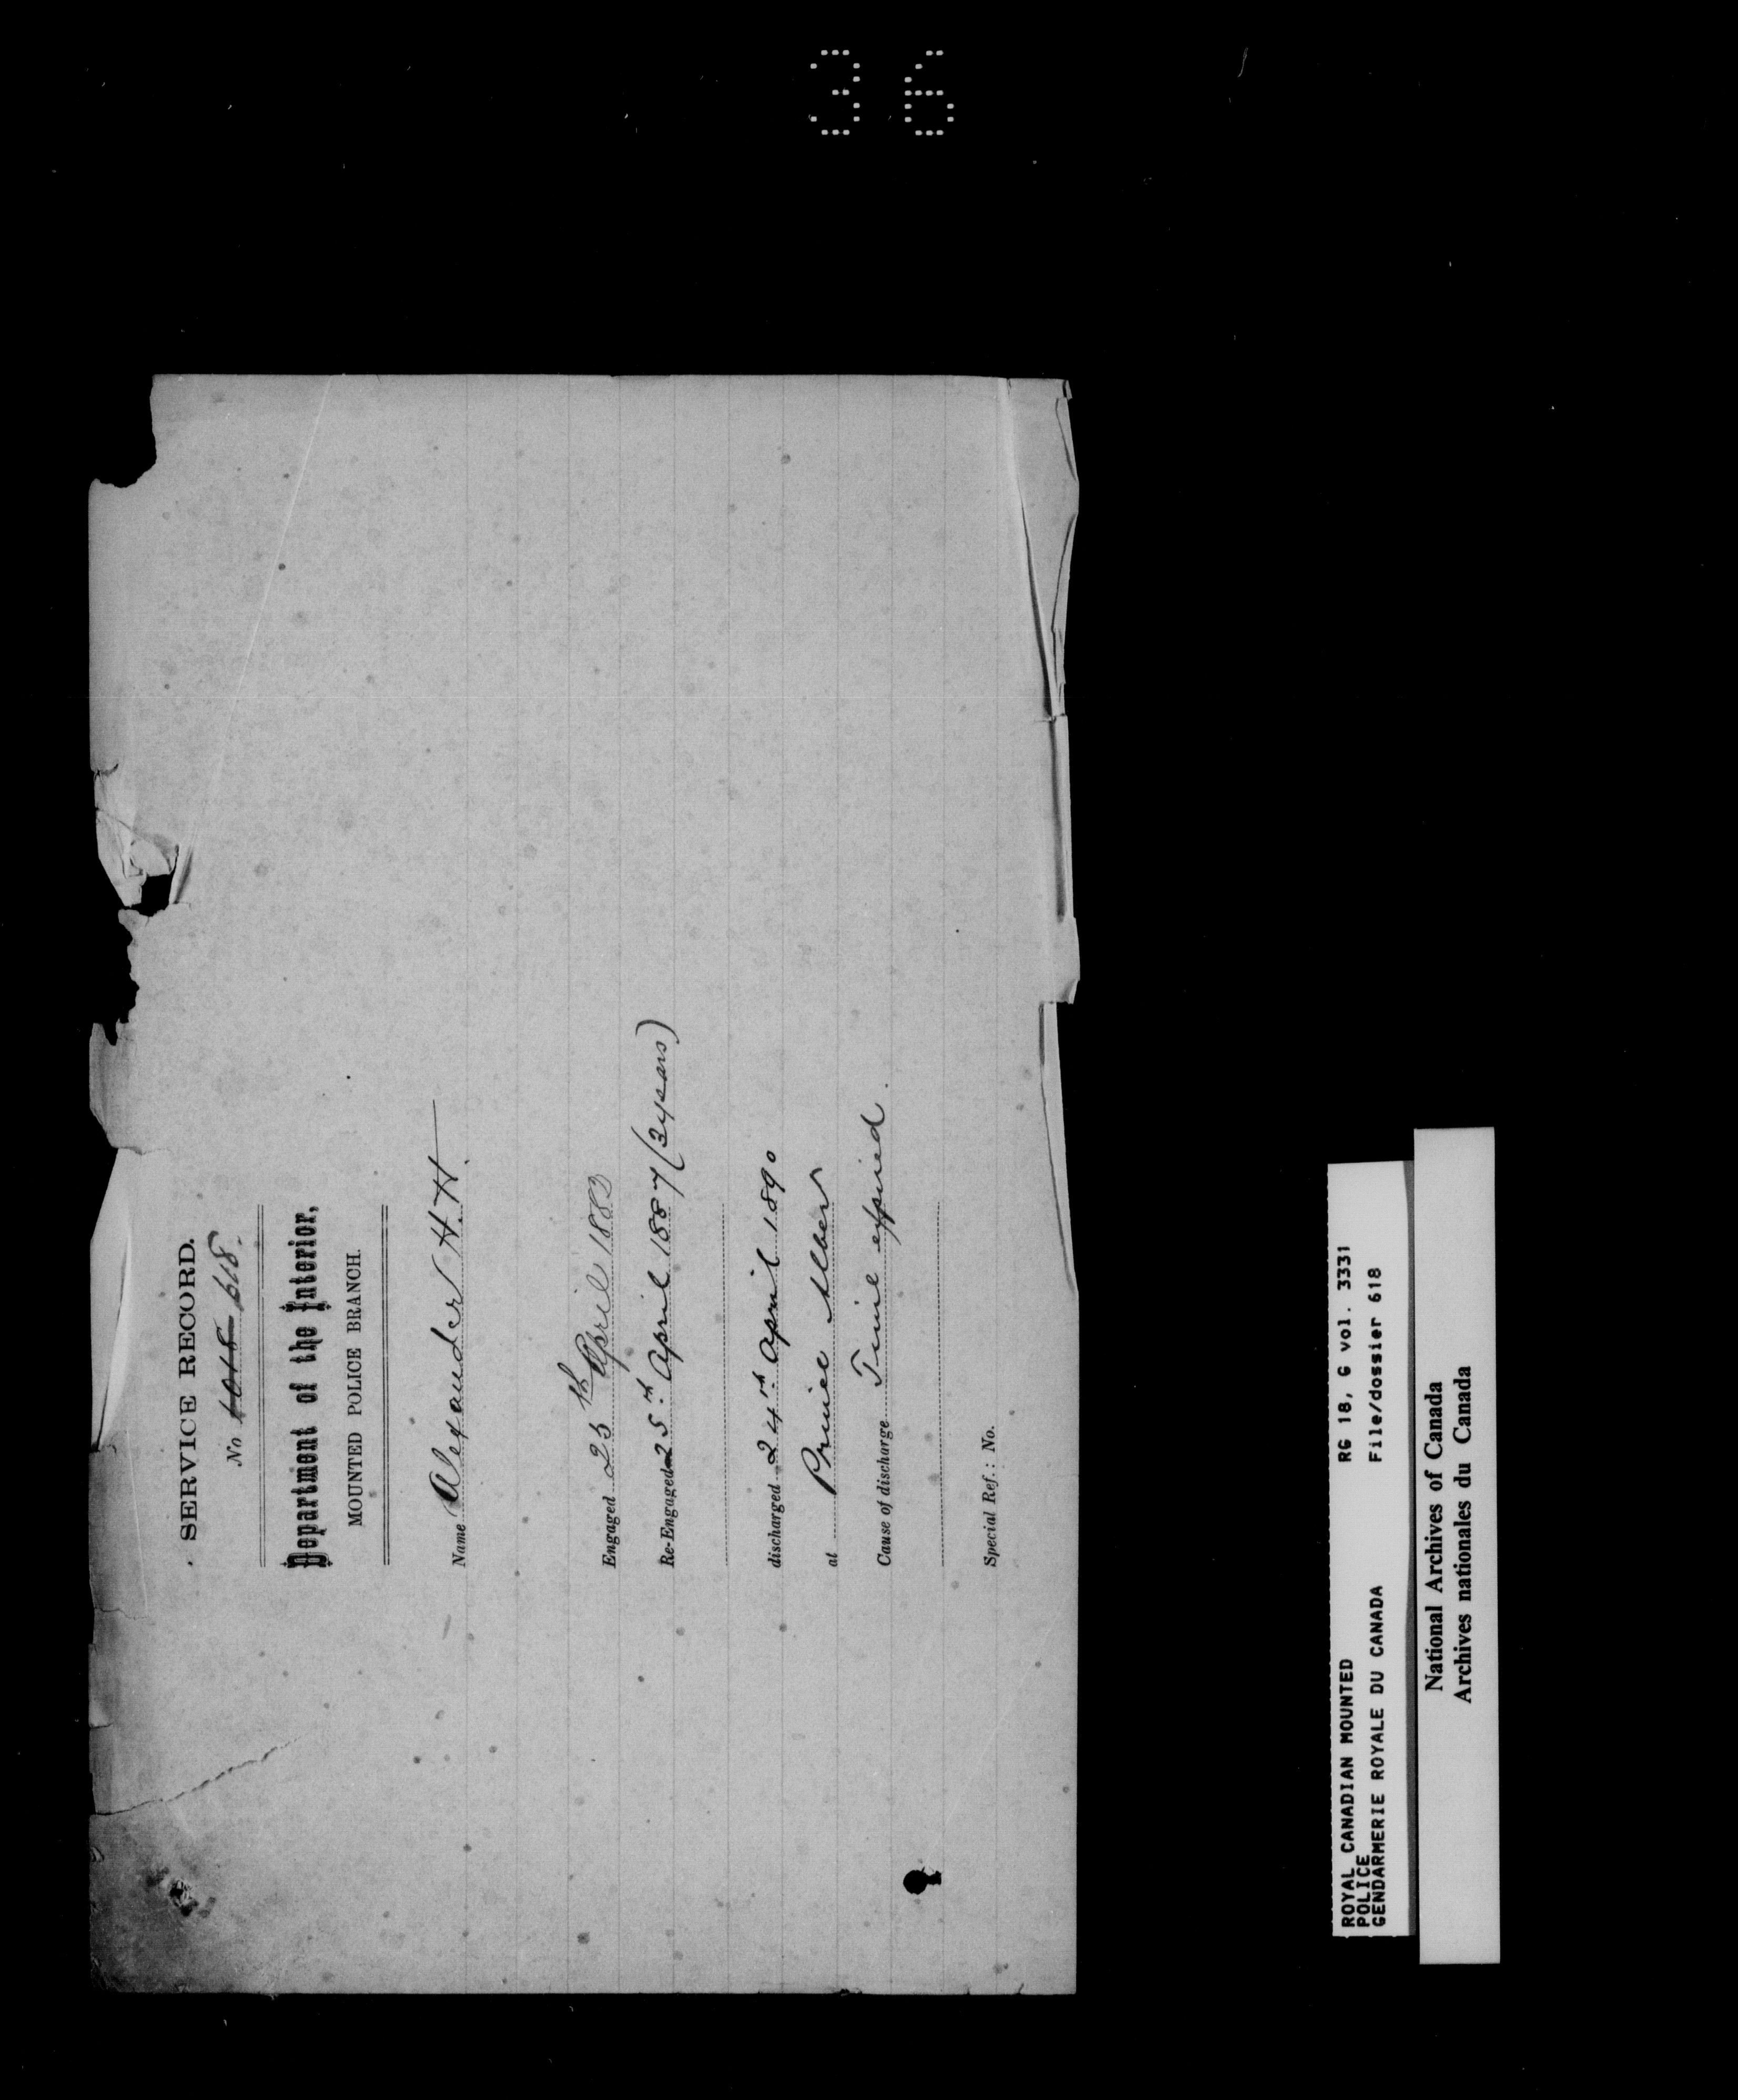 36
SERVICE RECORD.
No 1018 618.
Department of the Interior,
MOUNTED POLICE BRANCH.
Name Alexander H.H.
Engaged 25th April 1883
Re-Engaged 25th April 1887 (3 years)
discharged 24th April 1890
at Prince Albert
Cause of discharge Time expired.
Special Ref.: No.
ROYAL CANADIAN MOUNTED RG 18, G vol. 3331
POLICE
GENDARMERIE ROYALE DU CANADA File/dossier 618
National Archives of Canada
Archives nationales du Canada